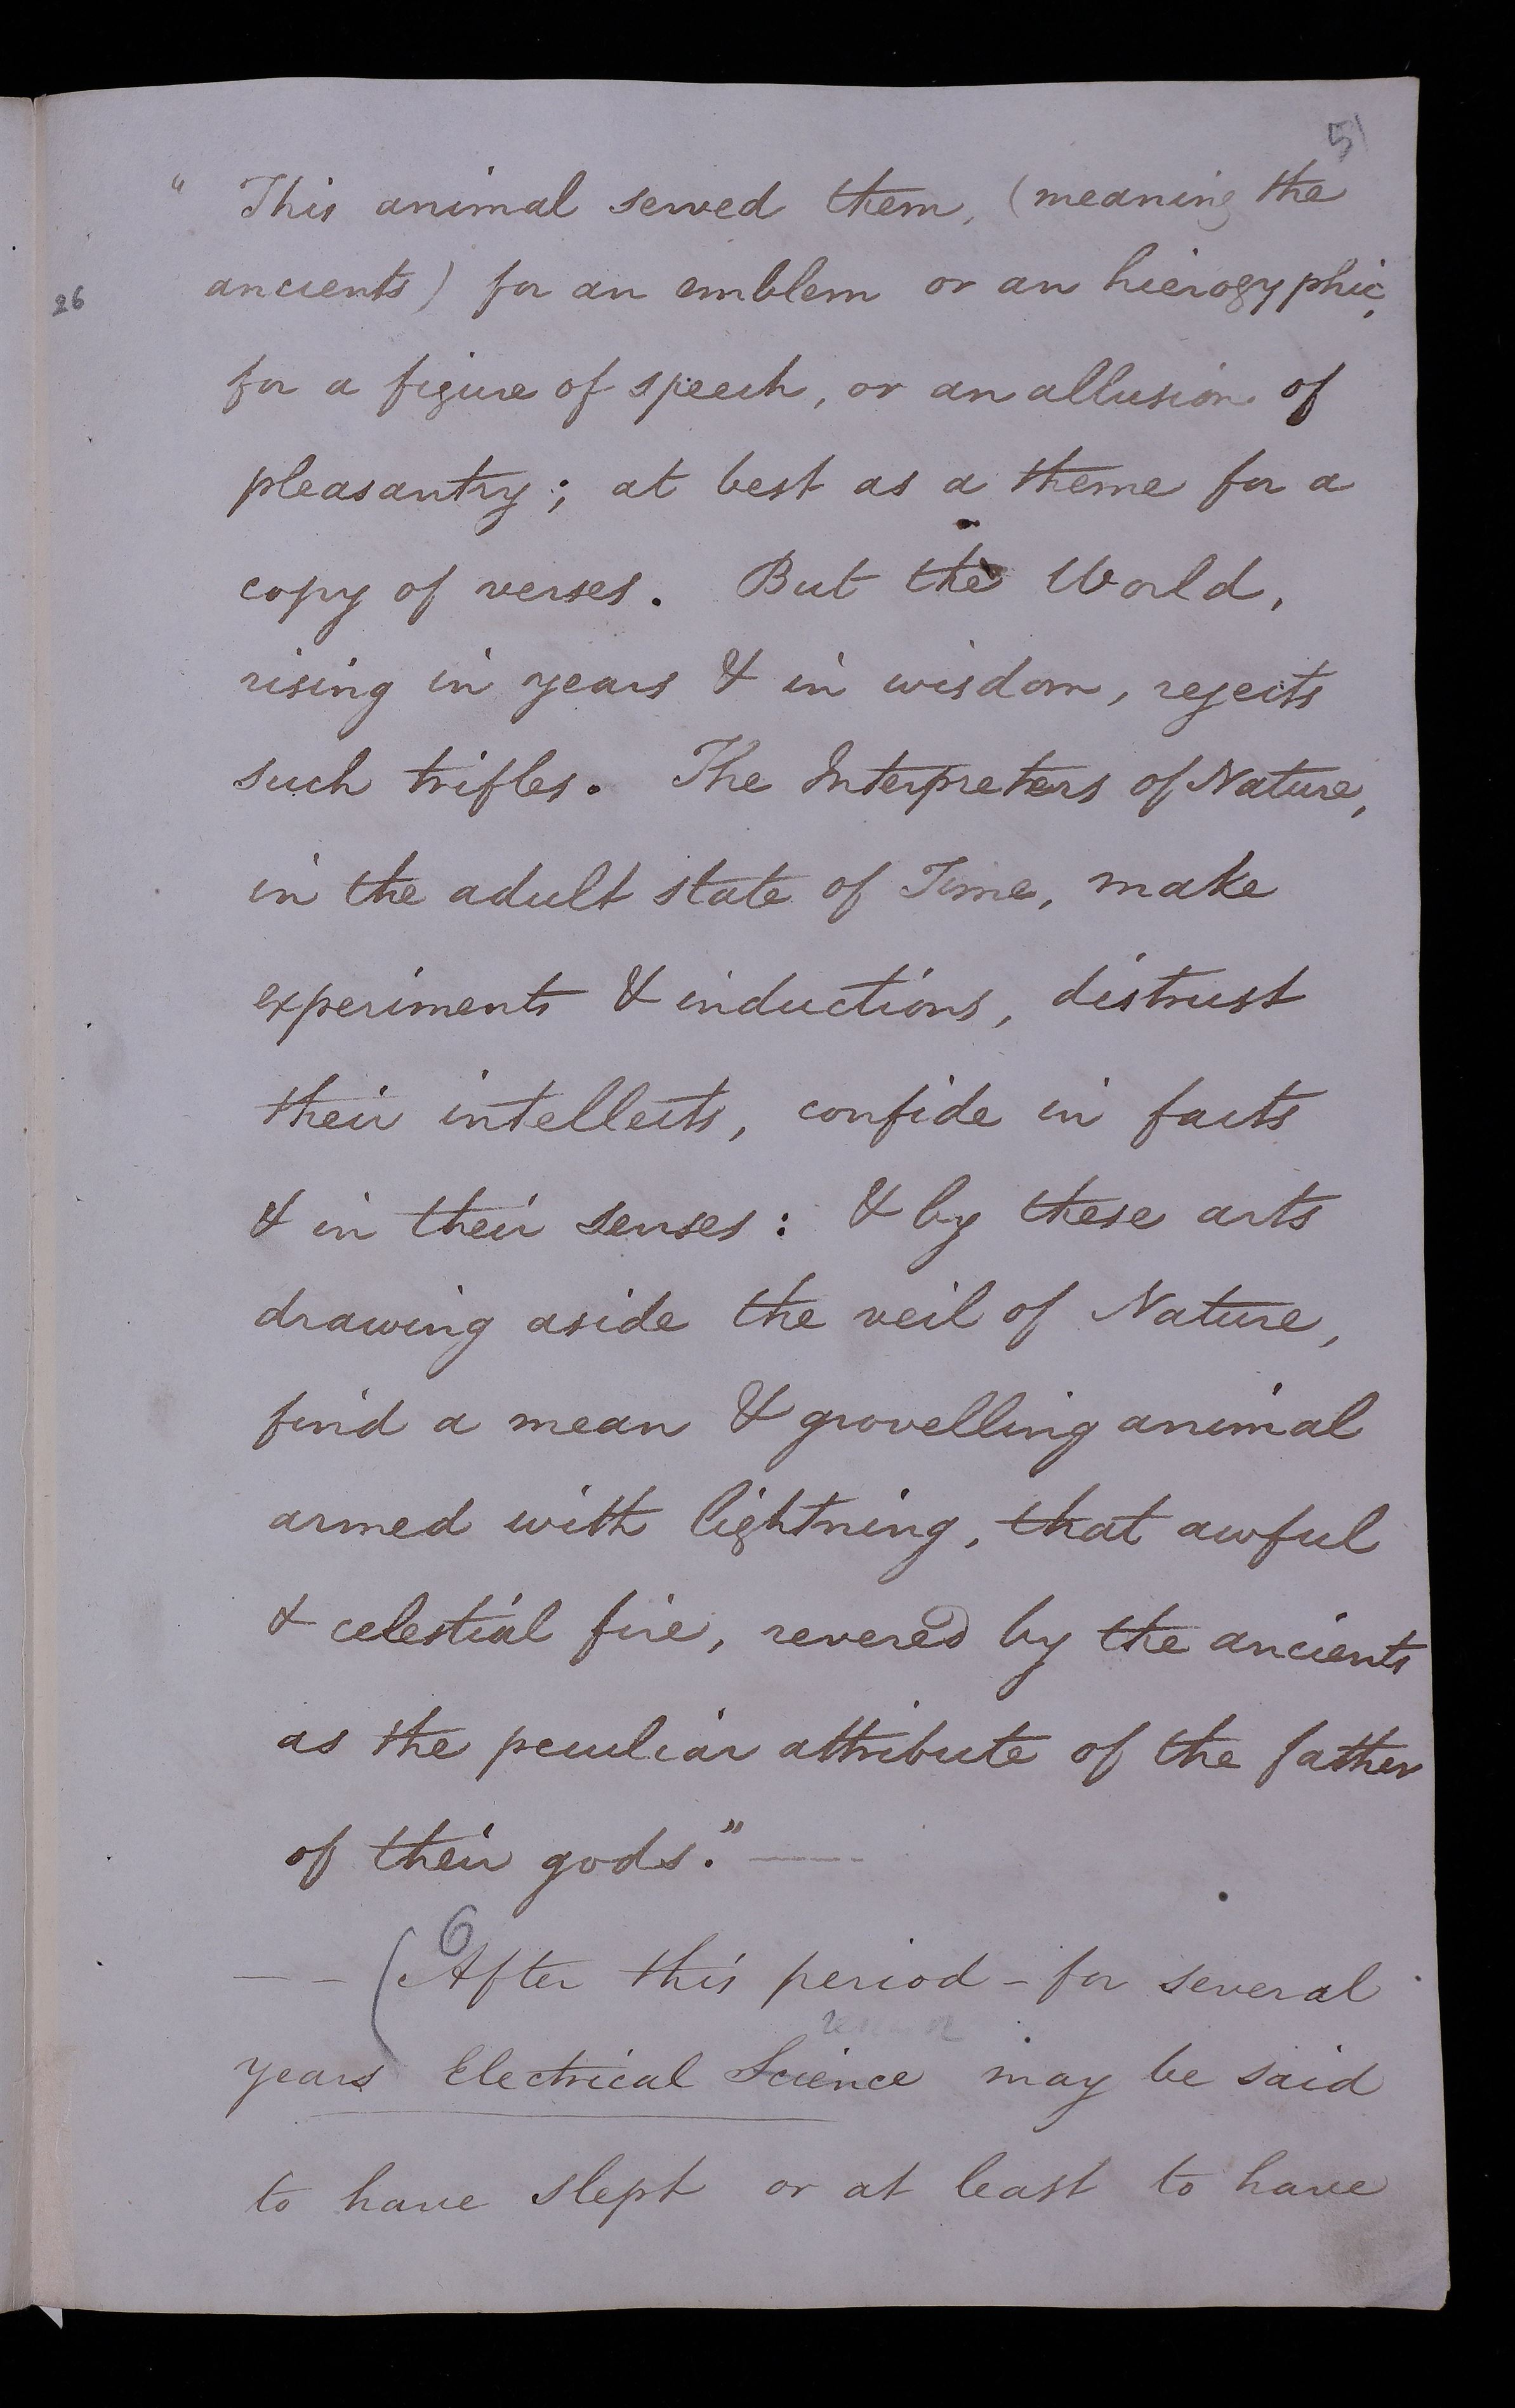 51
" This animal served them, (meaning the
26
ancients) for an emblem or an hierogyphic,
for a figure of speech, or an allusion of
pleasantry; at best as a theme for a
copy of verses. But the World,
rising in years & in wisdom, rejects
such trifles. The Interpreters of Nature,
in the adult state of Time, make
experiments & inductions, distrust
their intellects, confide in facts
& in their senses: & by these arts
drawing aside the veil of Nature,
find a mean & grovelling animal
armed with lightning, that awful
& celestial fire, revered by the ancients
as the peculiar attribute of the father
of their gods." —
6
— — (After this period - for several
years Electrical Science may be said
to have slept or at least to have